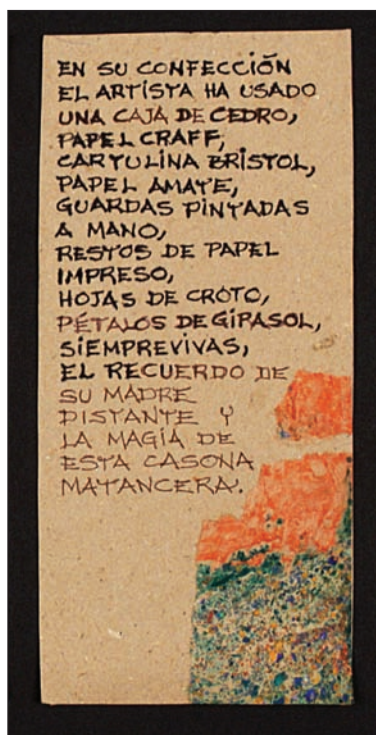 EN SU CONFECCIÓN
EL ARTISTA HA USADO
UNA CAJA DE CEDRO,
PAPEL CRAFF,
CARTULINA BRISTOL,
PAPEL AMATE,
GUARDAS PINTADAS
A MANO,
RESTOS DE PAPEL
IMPRESO,
HOJAS DE CROTO,
PÉTALOS DE GIRASOL,
SIEMPREVIVAS,
EL RECUERDO DE
SU MADRE
DISTANTE Y
LA MAGIA DE
ESTA CASONA
MATANCERA.